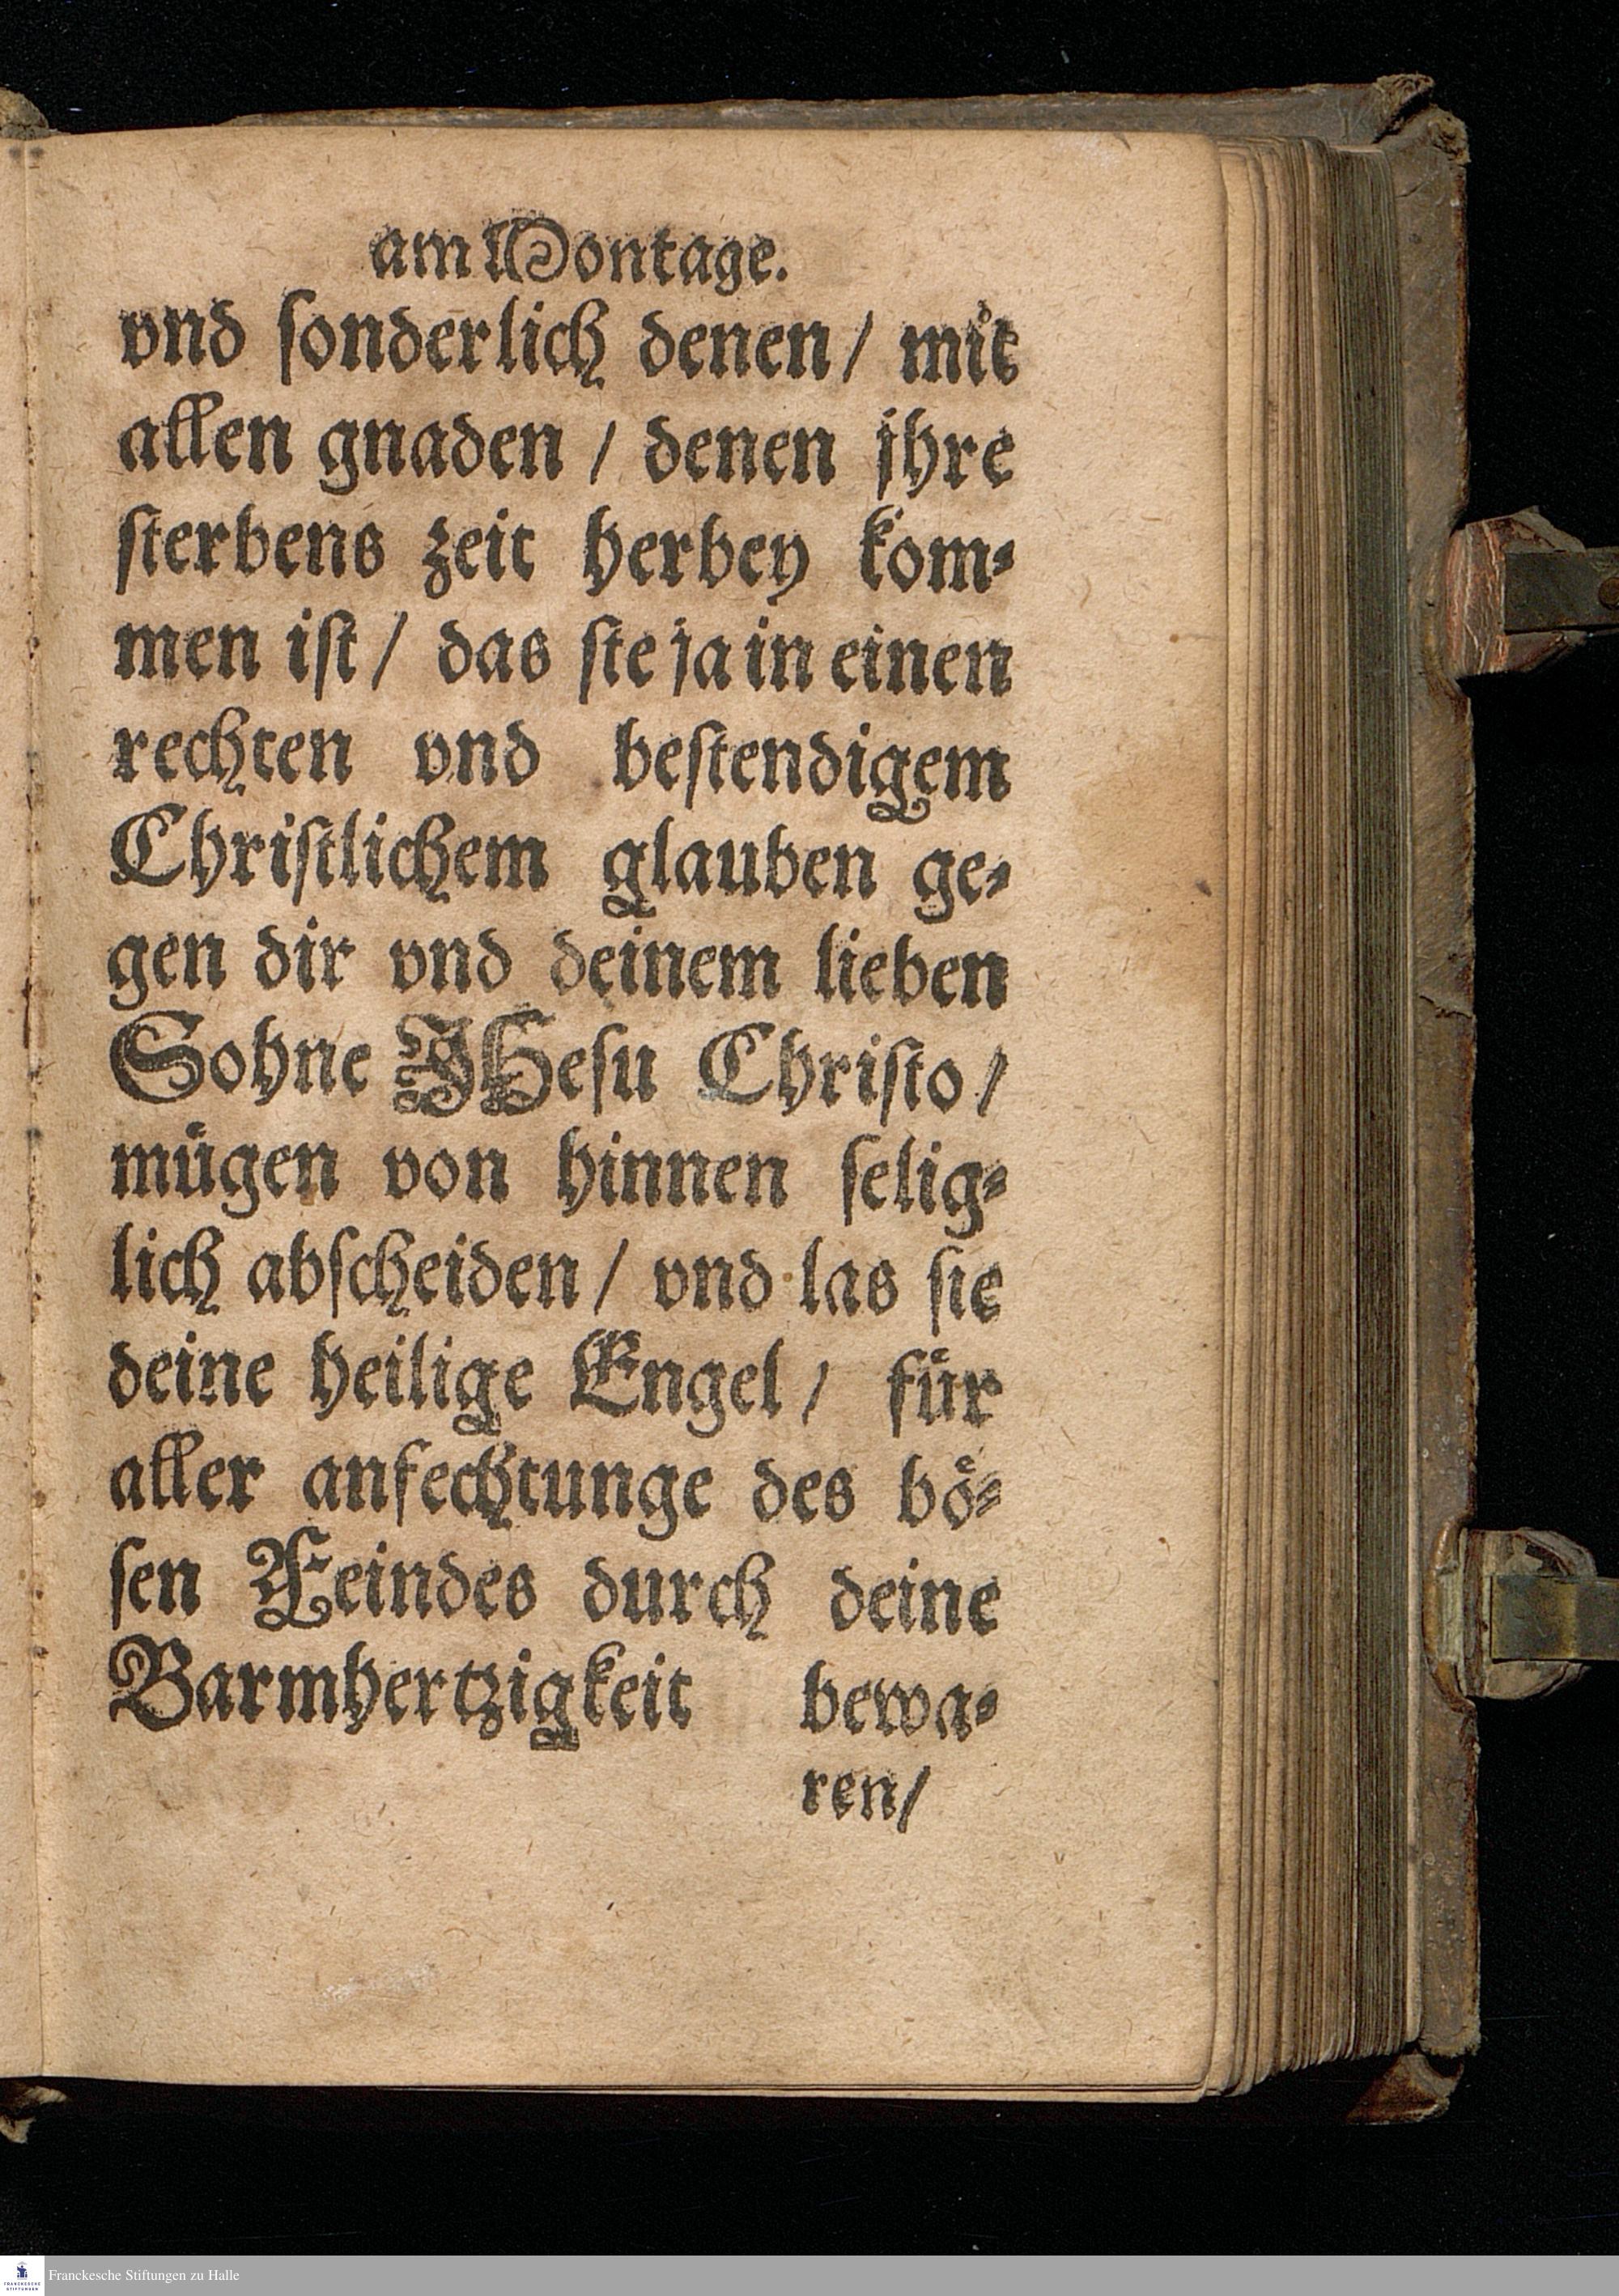 am Montage.
vnd ſonderlich denen/ mit
allen gnaden / denen jhre
ſterbens zeit herbey kom⸗
men iſt/ das ſie ja in einen
rechten vnd beſtendigem
Chriſtlichem glauben ge⸗
gen dir vnd deinem lieben
Sohne JHeſu Chriſto/
muͤgen von hinnen ſelig⸗
lich abſcheiden/ vnd las ſie
deine heilige Engel/ fuͤr
aller anfechtunge des boͤ⸗
ſen Feindes durch deine
Barmhertzigkeit bewa⸗
ren/
FRANCKESCHE
STIFTUNGEN
Franckesche Stiftungen zu Halle